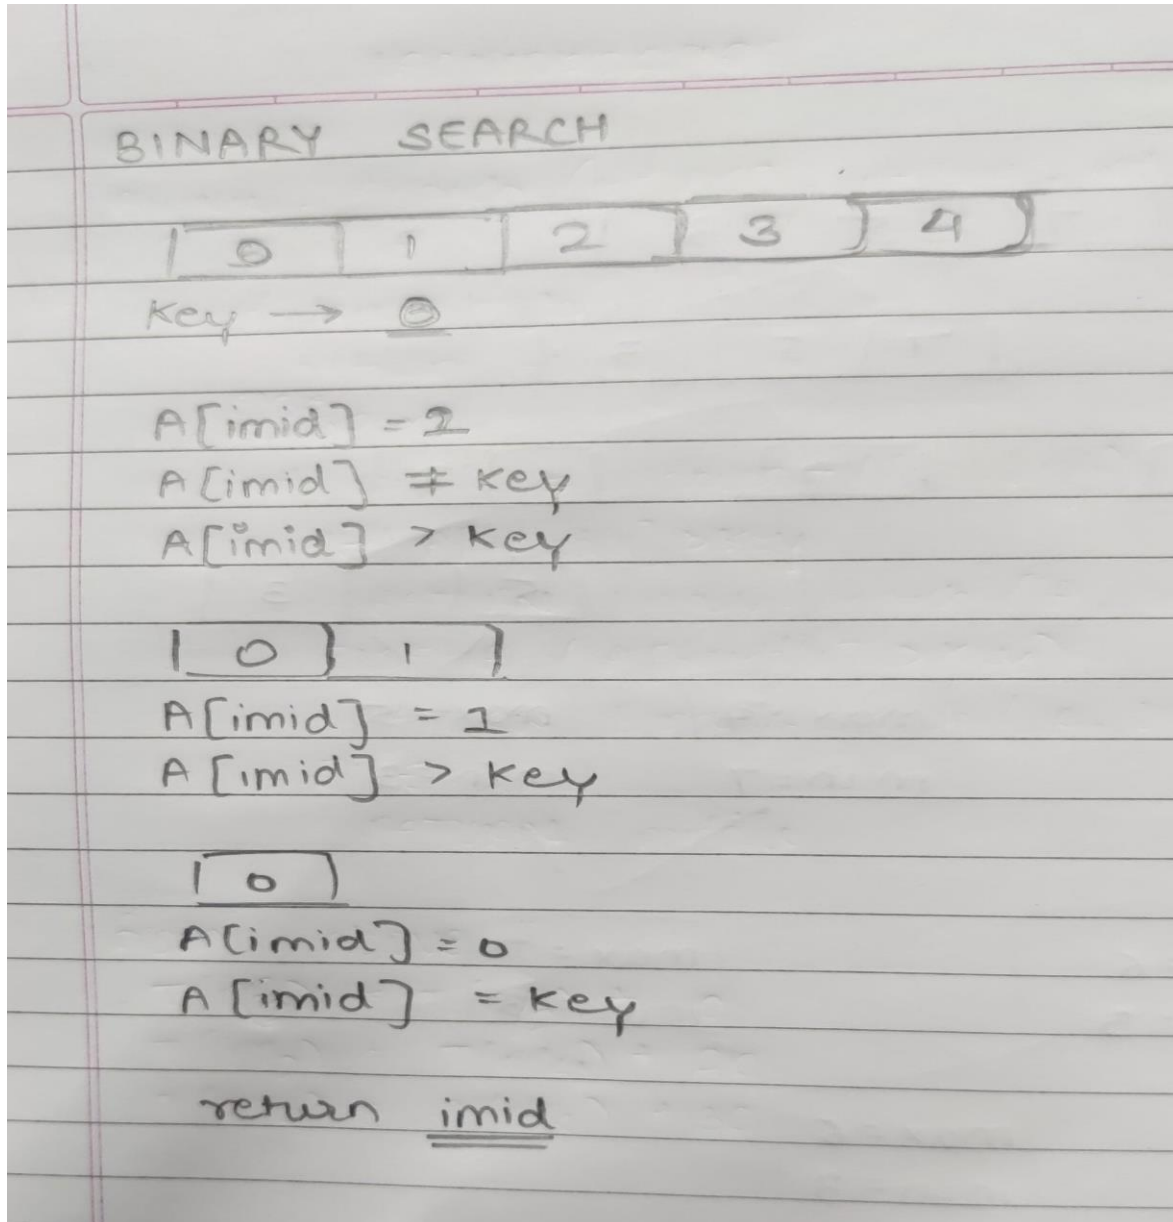 BINARY SEARCH
0 1 2 3 4
Key → 0
A[imid] = 2
A[imid] ≠ key
A[imid] > key
0 1
A[imid] = 1
A[imid] > key
0
A[imid] = 0
A[imid] = key
return imid